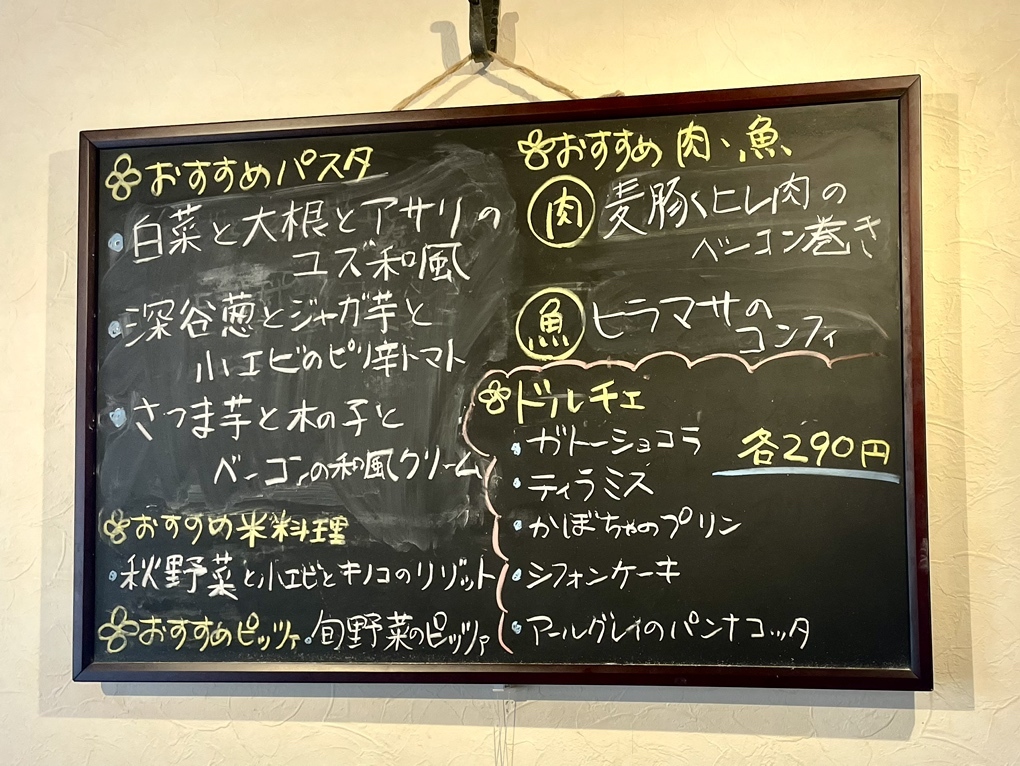 おすすめパスタ
白菜と大根とアサリの
ユズ和風
深谷葱とジャガ芋と
小エビのピリ辛トマト
さつま芋と木の子と
ベーコンの和風クリーム
おすすめ米料理
秋野菜と小エビとキノコのリゾット
おすすめピッツァ・旬野菜のピッツァ
おすすめ肉、魚
肉 麦豚くヒレ肉の
ベーコン巻き
魚 ヒラマサの
コンフィ
ドルチェ
各290円
ガトーショコラ
ティラミス
かぼちゃのプリン
シフォンケーキ
アールグレイのパンナコッタ